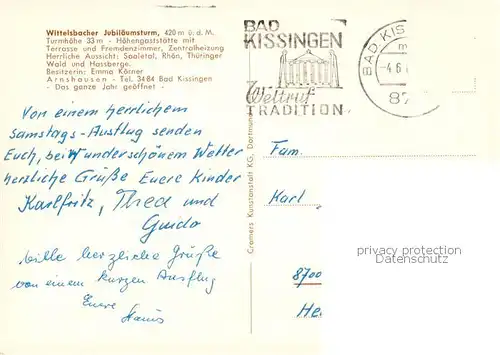 Wittelsbacher Jubiläumsturm, 420 m ü. d. M.
Turmhöhe 33 m - Höhengaststätte mit
Terrasse und Fremdenzimmer, Zentralheizung
Herrliche Aussicht: Saaletal, Rhön, Thüringer
Wald und Hassberge.
Besitzerin: Emma Körner
Arnshausen - Tel. 3484 Bad Kissingen
- Das ganze Jahr geöffnet -
BAD
KISSINGEN
Weltruf
TRADITION
BAD KIS
m
-4.6.
87
Von einem herrlichem
Samstags-Ausflug senden
Euch, bei wunderschönem Wetter
herzliche Grüße Euere Kinder
Karlfritz, Thea und
Guido
herzliche Grüße
von einem kurzen Ausflug
Euere
Hans
Cramers Kunstanstalt KG, Dortmund
Fam.
Karl
8700
He
privacy protection
Datenschutz